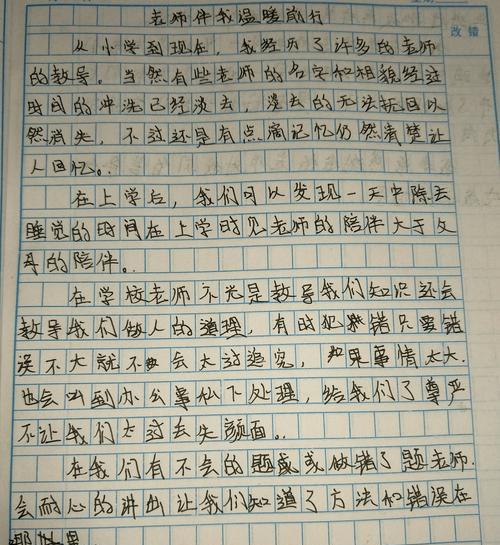 老师伴我温暖前行
改错
从小学到现在，我经历了许多的老师
的教导。当然有些老师的名字和相貌经过
时间的冲洗已经淡去，淡去的无法挽回以
然消失，不过还是有点滴记忆仍然清楚让
人回忆。
在上学后，我们可以发现一天中除去
睡觉的时间在上学时见老师的陪伴大于父
母的陪伴。
在学校老师不光是教导我们知识还会
教导我们做人的道理，有时犯错只要错
误不大就不会太过追究，如果事情太大.
也会叫到办公事私下处理，给我们了尊严
不让我们太过去失颜面。
在我们有不会的题或或做错了题老师.
会耐心的讲出让我们知道了方法和错误在